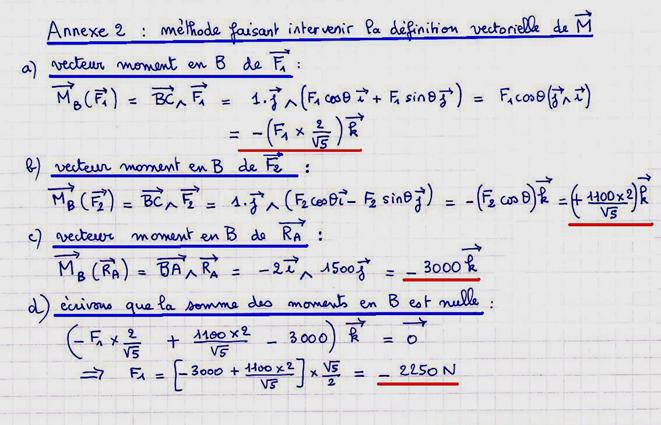 Annexe 2 : méthode faisant intervenir la définition vectorielle de M⃗
a) vecteur moment en B de F₁⃗ :
M_B⃗ (F₁⃗) = BC⃗ ∧ F₁⃗ = 1.j⃗ ∧ (F₁ cosθ i⃗ + F₁ sinθ j⃗) = F₁cosθ(j⃗ ∧ i⃗)
= -(F₁ × 2/√5) k⃗
b) vecteur moment en B de F₂⃗ :
M_B⃗ (F₂⃗) = BC⃗ ∧ F₂⃗ = 1.j⃗ ∧ (F₂ cosθ i⃗ - F₂ sinθ j⃗) = -(F₂ cosθ) k⃗ = (+ 1100×2/√5) k⃗
c) vecteur moment en B de R_A⃗ :
M_B⃗ (R_A⃗) = BA⃗ ∧ R_A⃗ = -2i⃗ ∧ 1500j⃗ = - 3000 k⃗
d) écrivons que la somme des moments en B est nulle :
(-F₁ × 2/√5 + 1100×2/√5 - 3000) k⃗ = 0⃗
⇒ F₁ = [-3000 + 1100×2/√5] × √5/2 = - 2250 N